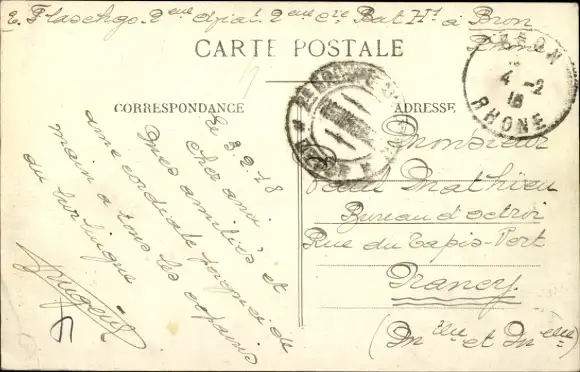 E. Flaschgo 2eme dépôt 2eme Cie Bat H1 à Bron
Rhône
CARTE POSTALE
CORRESPONDANCE
ADRESSE
BRON
4-2
18
RHONE
Le 3.2.18
cher ami
Mes amitiés et
une cordiale poignée de
main à tous les copains
du
Eugène
Monsieur
Paul Mathieu
Bureau d'octroi
Rue du Tapis-Vert
Nancy
(Mthe et Melle)